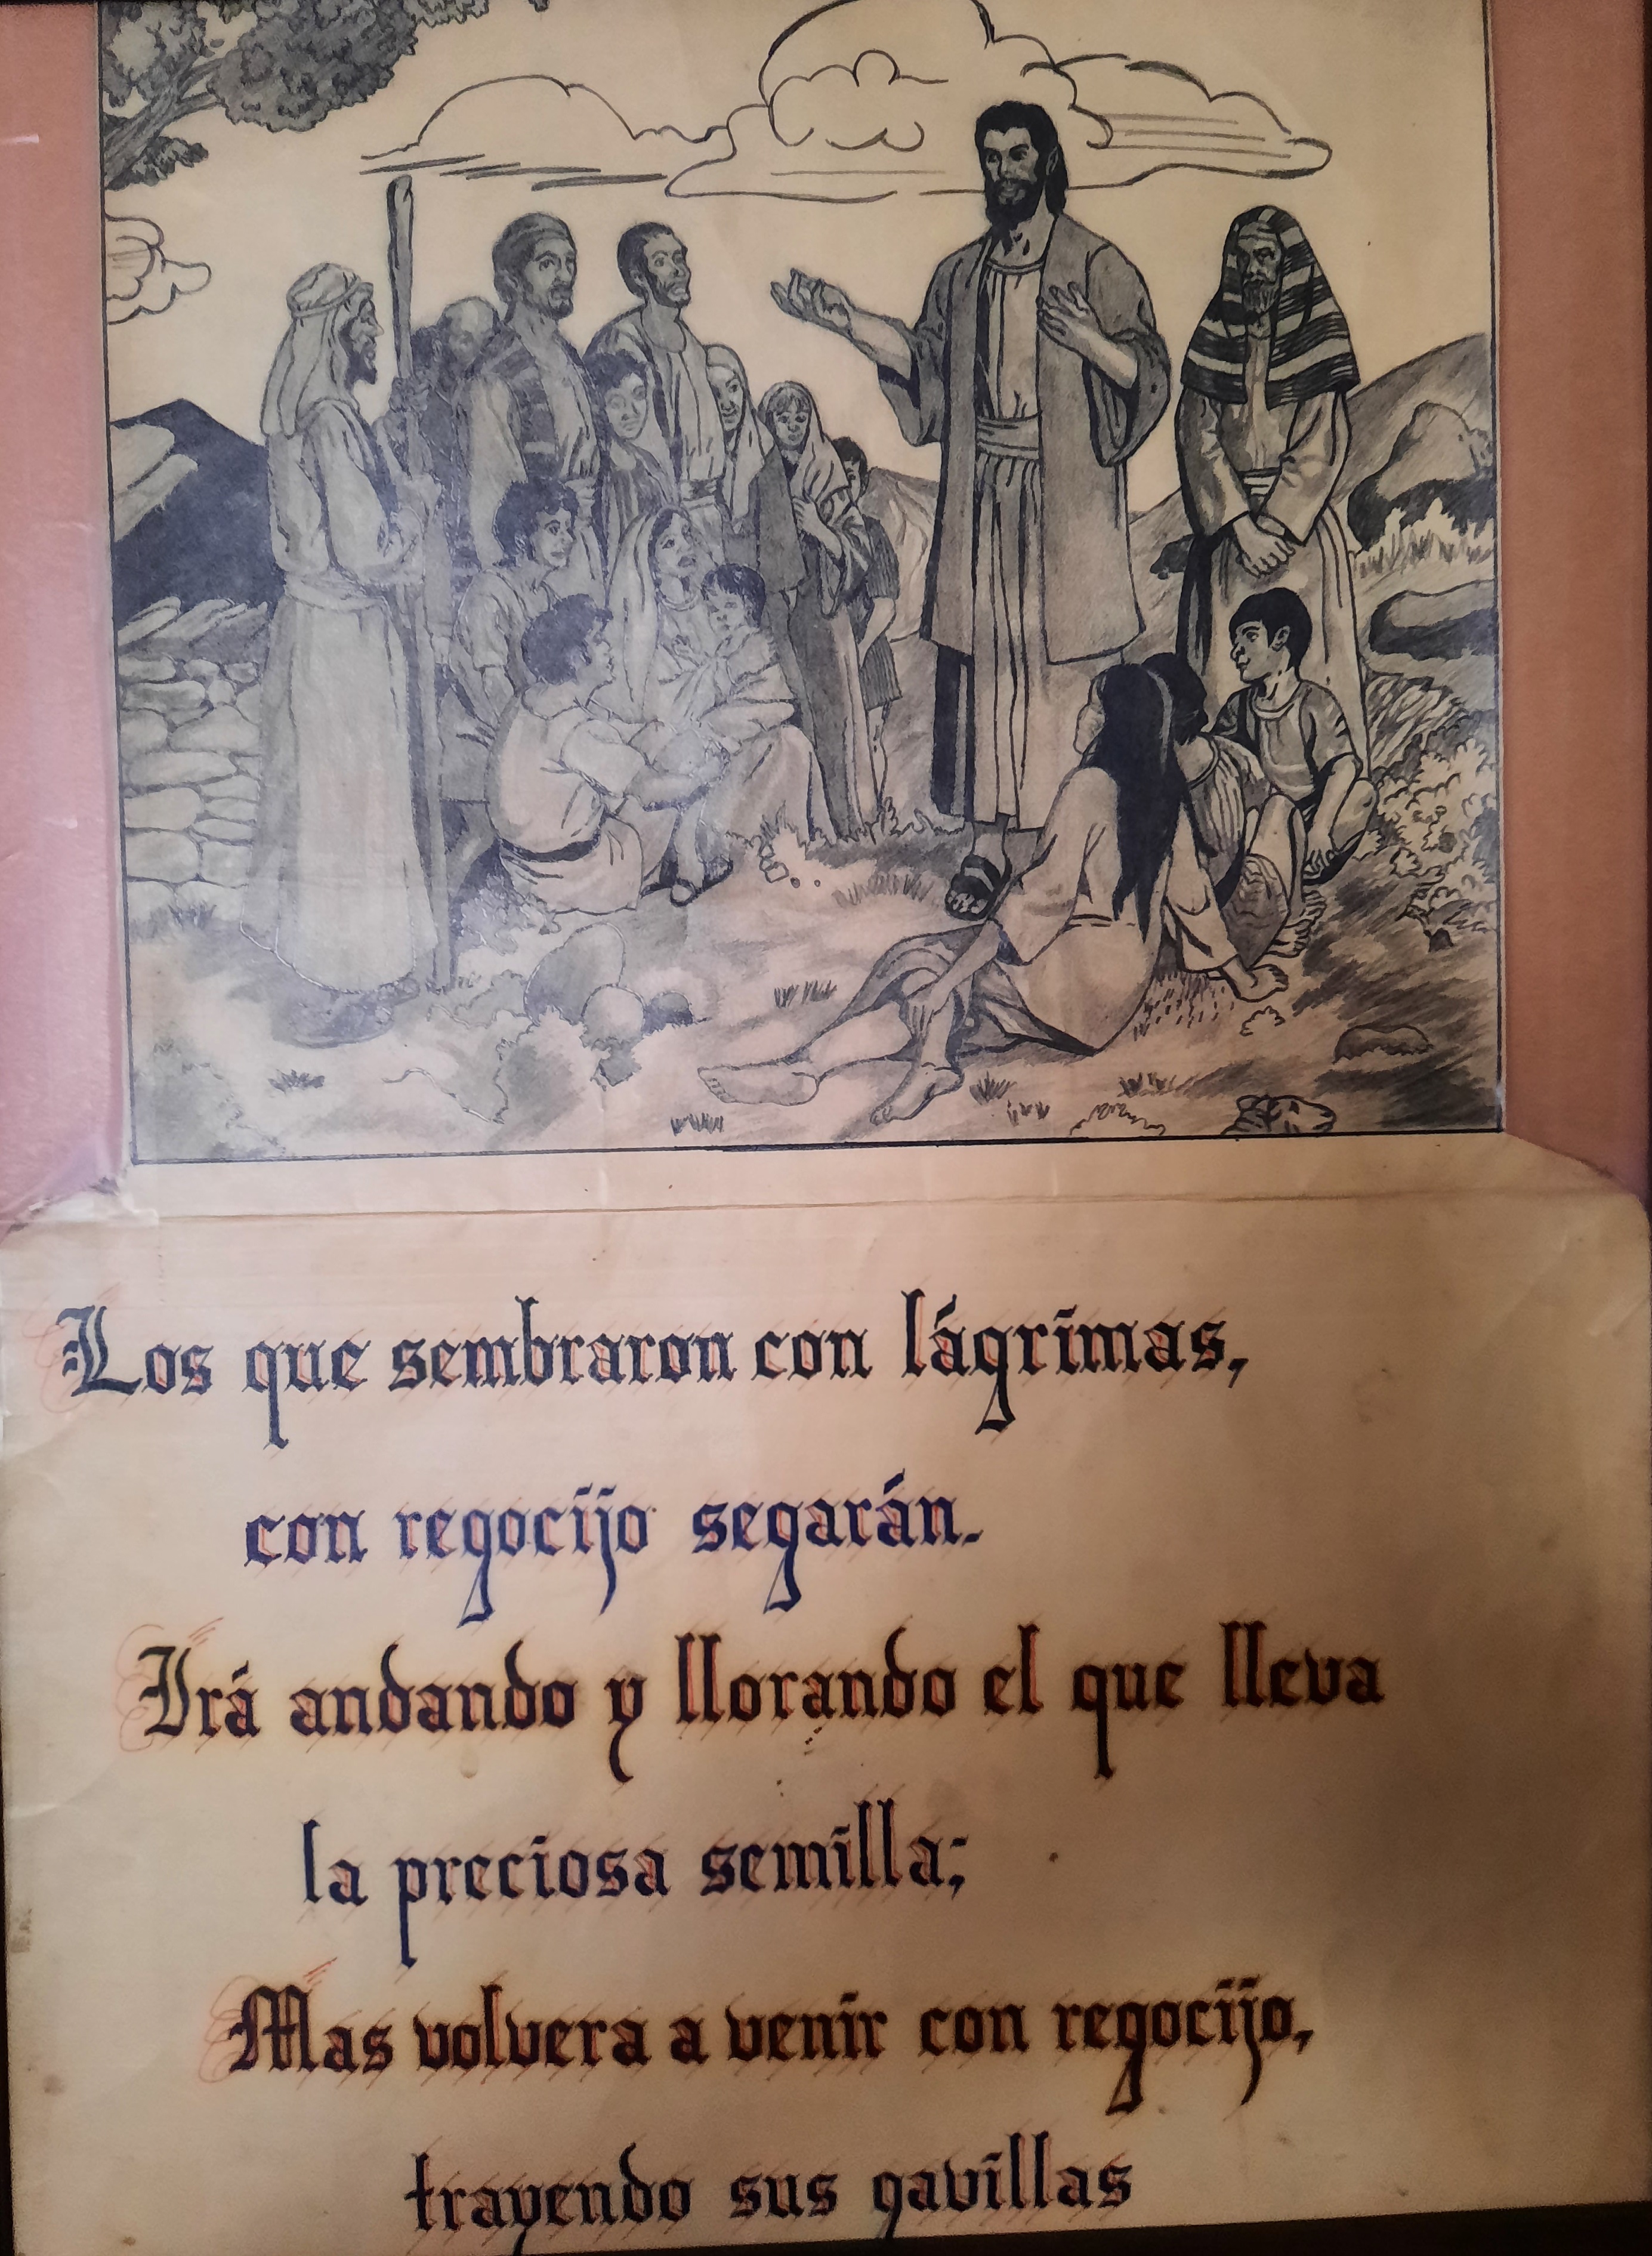 Los que sembraron con lágrimas,
con regocijo segarán.
Irá andando y llorando el que lleva
la preciosa semilla;
Mas volvera a venir con regocijo,
trayendo sus gavillas